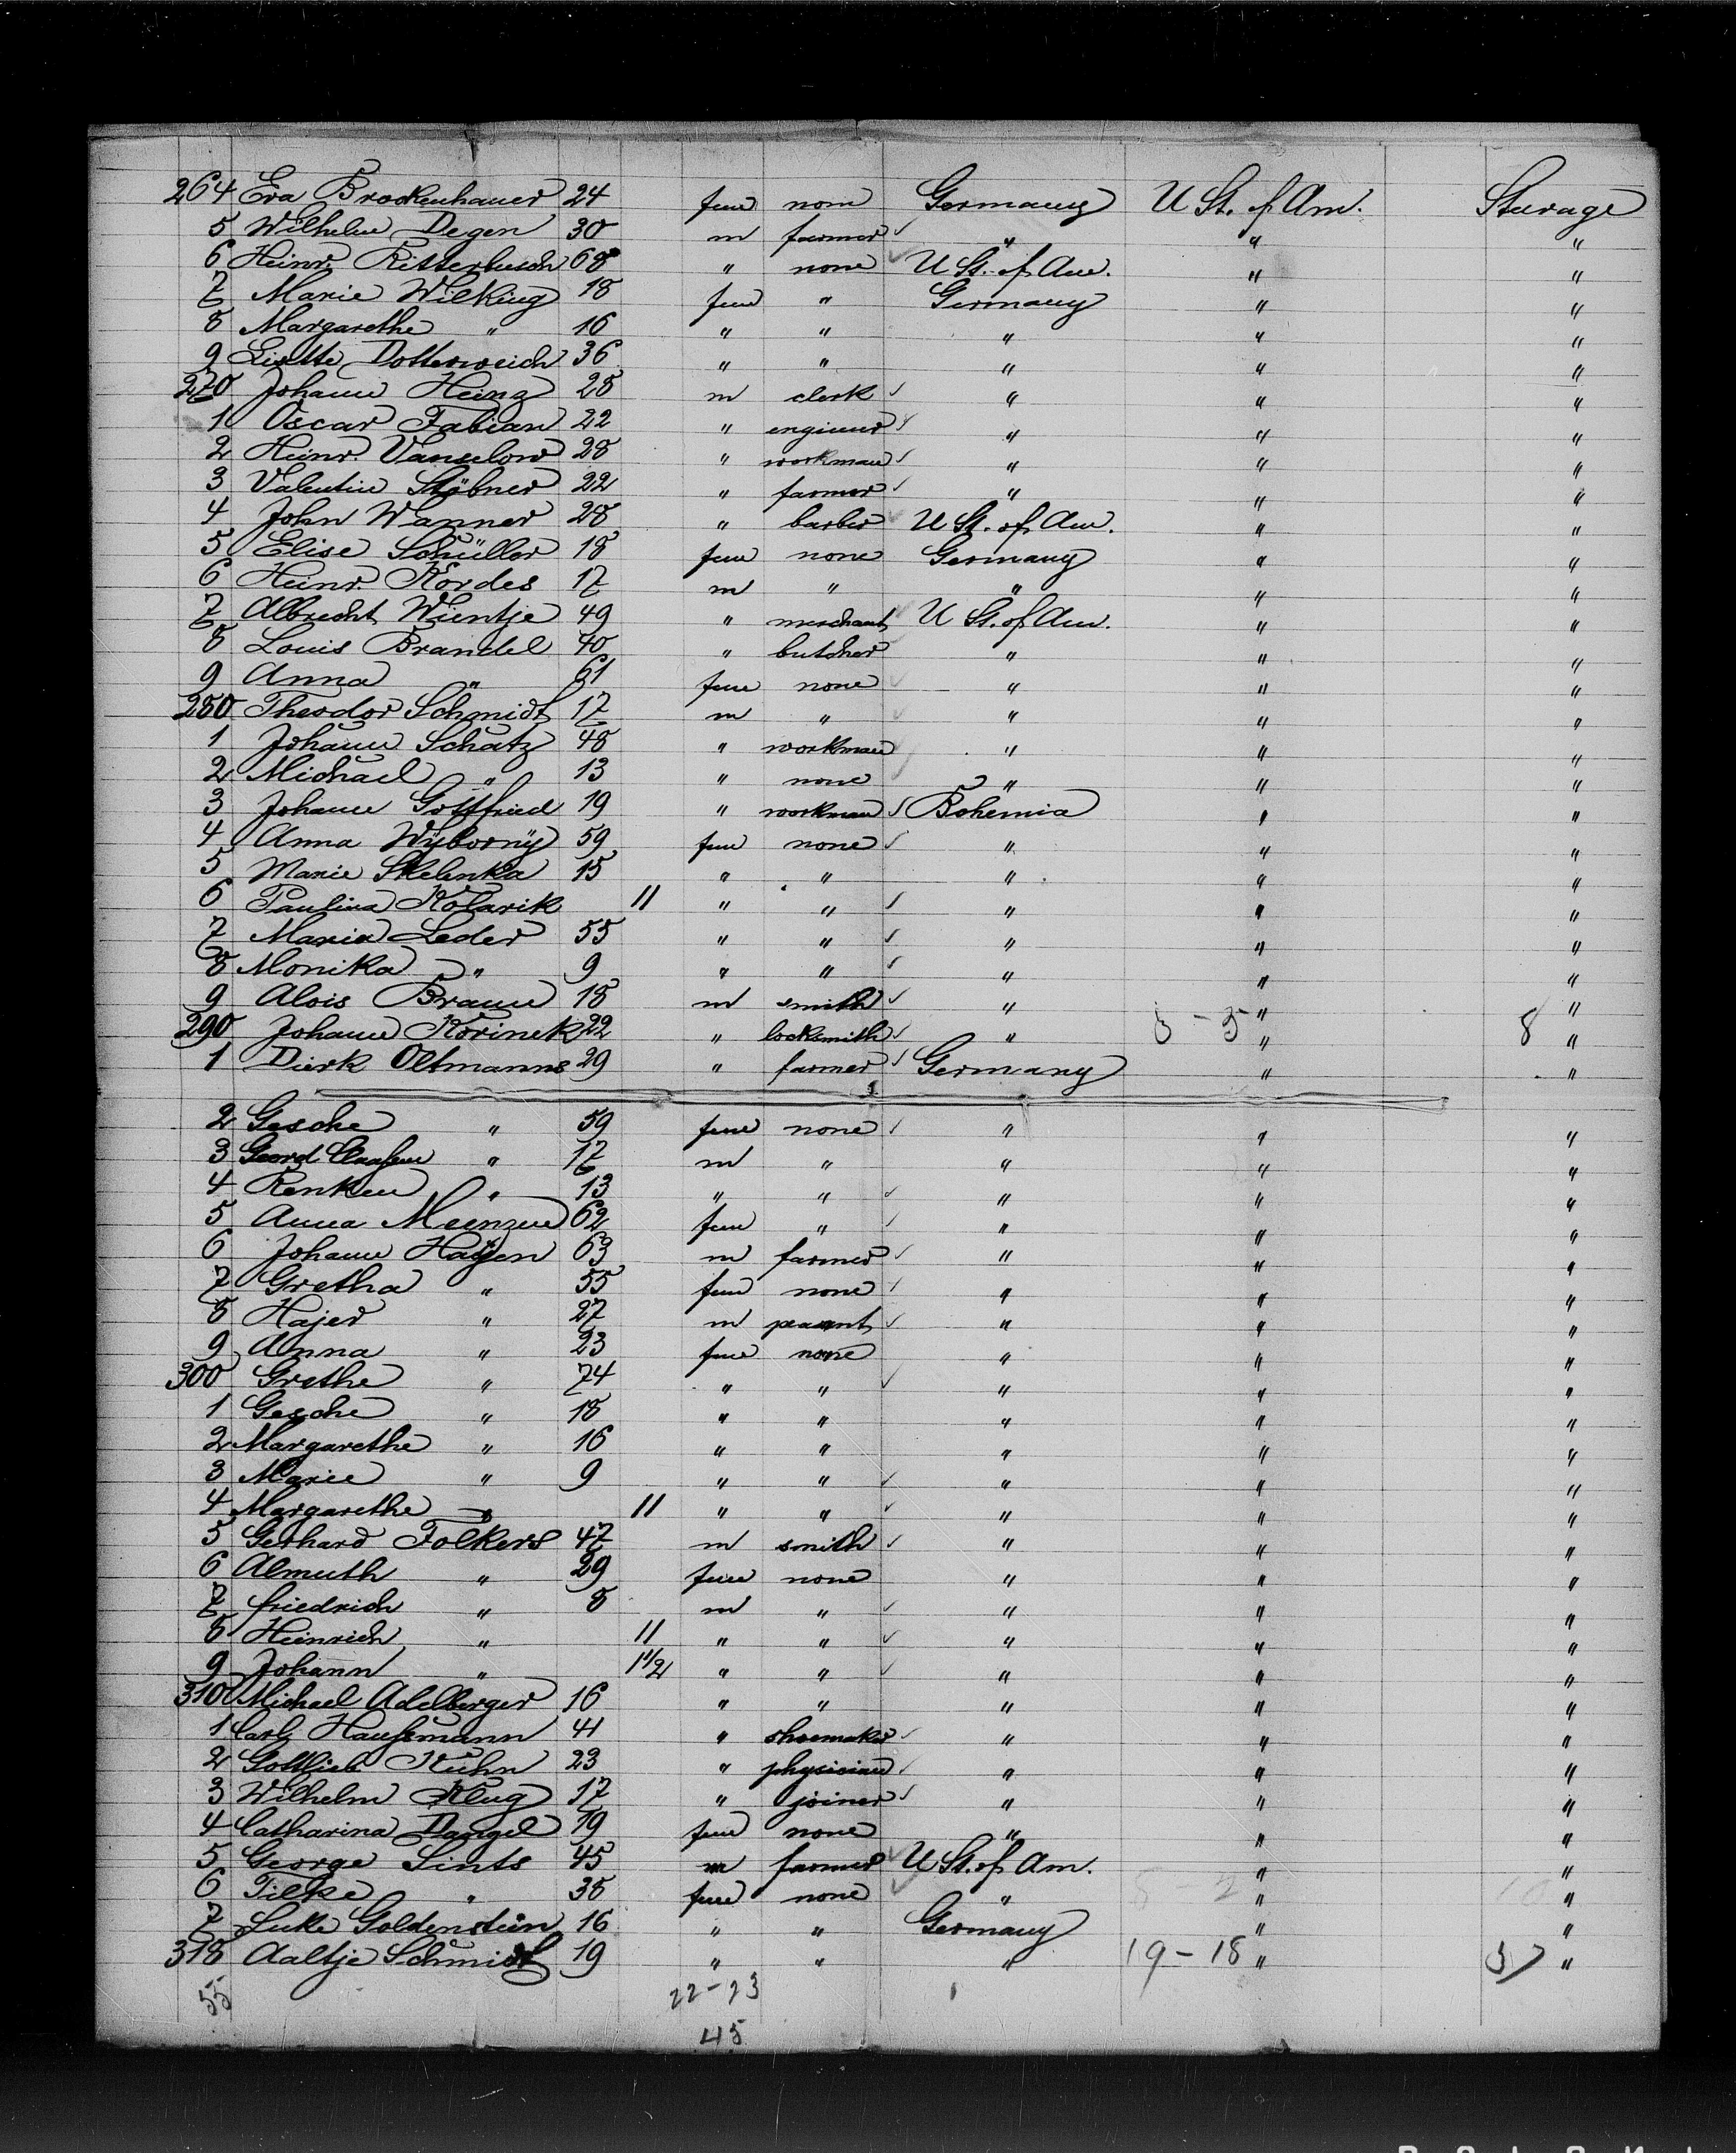 264 Eva Brockenhauer 24 fem none Germany U St. of Am. Sterage
5 Wilhelm Degen 30 m farmer " " "
6 Heinr. Ritterbusch 68 " none U St. of Am. " "
7 Marie Wilking 18 fem " Germany " "
8 Margarethe " 16 " " " " "
9 Lisette Dotterweich 36 " " " " "
270 Johann Heinz 28 m clerk " " "
1 Oscar Fabian 22 " engineer " " "
2 Heinr. Vanselow 28 " workman " " "
3 Valentin Stübner 22 " farmer " " "
4 John Wanner 28 " barber U St. of Am. " "
5 Elise Schüller 18 fem none Germany " "
6 Heinr. Kordes 17 m " " " "
7 Albrecht Wientje 49 " merchant U St. of Am. " "
8 Louis Brandel 40 " butcher " " "
9 Anna " 61 fem none " " "
280 Theodor Schmidt 17 m " " " "
1 Johann Schatz 48 " workman " " "
2 Michael " 13 " none " " "
3 Johann Gottfried 19 " workman Bohemia " "
4 Anna Wyborny 59 fem none " " "
5 Marie Sklenka 15 " " " " "
6 Paulina Kolarik 11 " " " " "
7 Maria Leder 55 " " " " "
8 Monika " 9 " " " " "
9 Alois Braun 18 m smith " " "
290 Johann Korinek 22 " locksmith " 3-5 " 8 "
1 Dierk Oltmanns 29 " farmer Germany " "
2 Gesche " 59 fem none " " "
3 Geerd Claassen " 17 m " " " "
4 Renken " 13 " " " " "
5 Anna Meenzen 62 fem " " " "
6 Johann Hayen 63 m farmer " " "
7 Gretha " 55 fem none " " "
8 Hajer " 27 m peasant " " "
9 Anna " 23 fem none " " "
300 Grethe " 74 " " " " "
1 Gesche " 18 " " " " "
2 Margarethe " 16 " " " " "
3 Marie " 9 " " " " "
4 Margarethe " 11 " " " " "
5 Gerhard Folkers 47 m smith " " "
6 Almuth " 29 fem none " " "
7 friedrich " 8 m " " " "
8 Heinrich " 11 " " " " "
9 Johann " 1 1/2 " " " " "
310 Michael Adelberger 16 " " " " "
1 Carl Haussmann 41 " shoemaker " " "
2 Gottlieb Kuhn 23 " physician " " "
3 Wilhelm Klug 17 " joiner " " "
4 Catharina Dangel 19 fem none " " "
5 George Sints 45 m farmer U St. of Am. " "
6 Tilke " 38 fem none " " "
7 Luke Goldenstein 16 " " Germany " "
318 Aaltje Schmidt 19 " " " 19-18 " 37 "
55 22-23
45